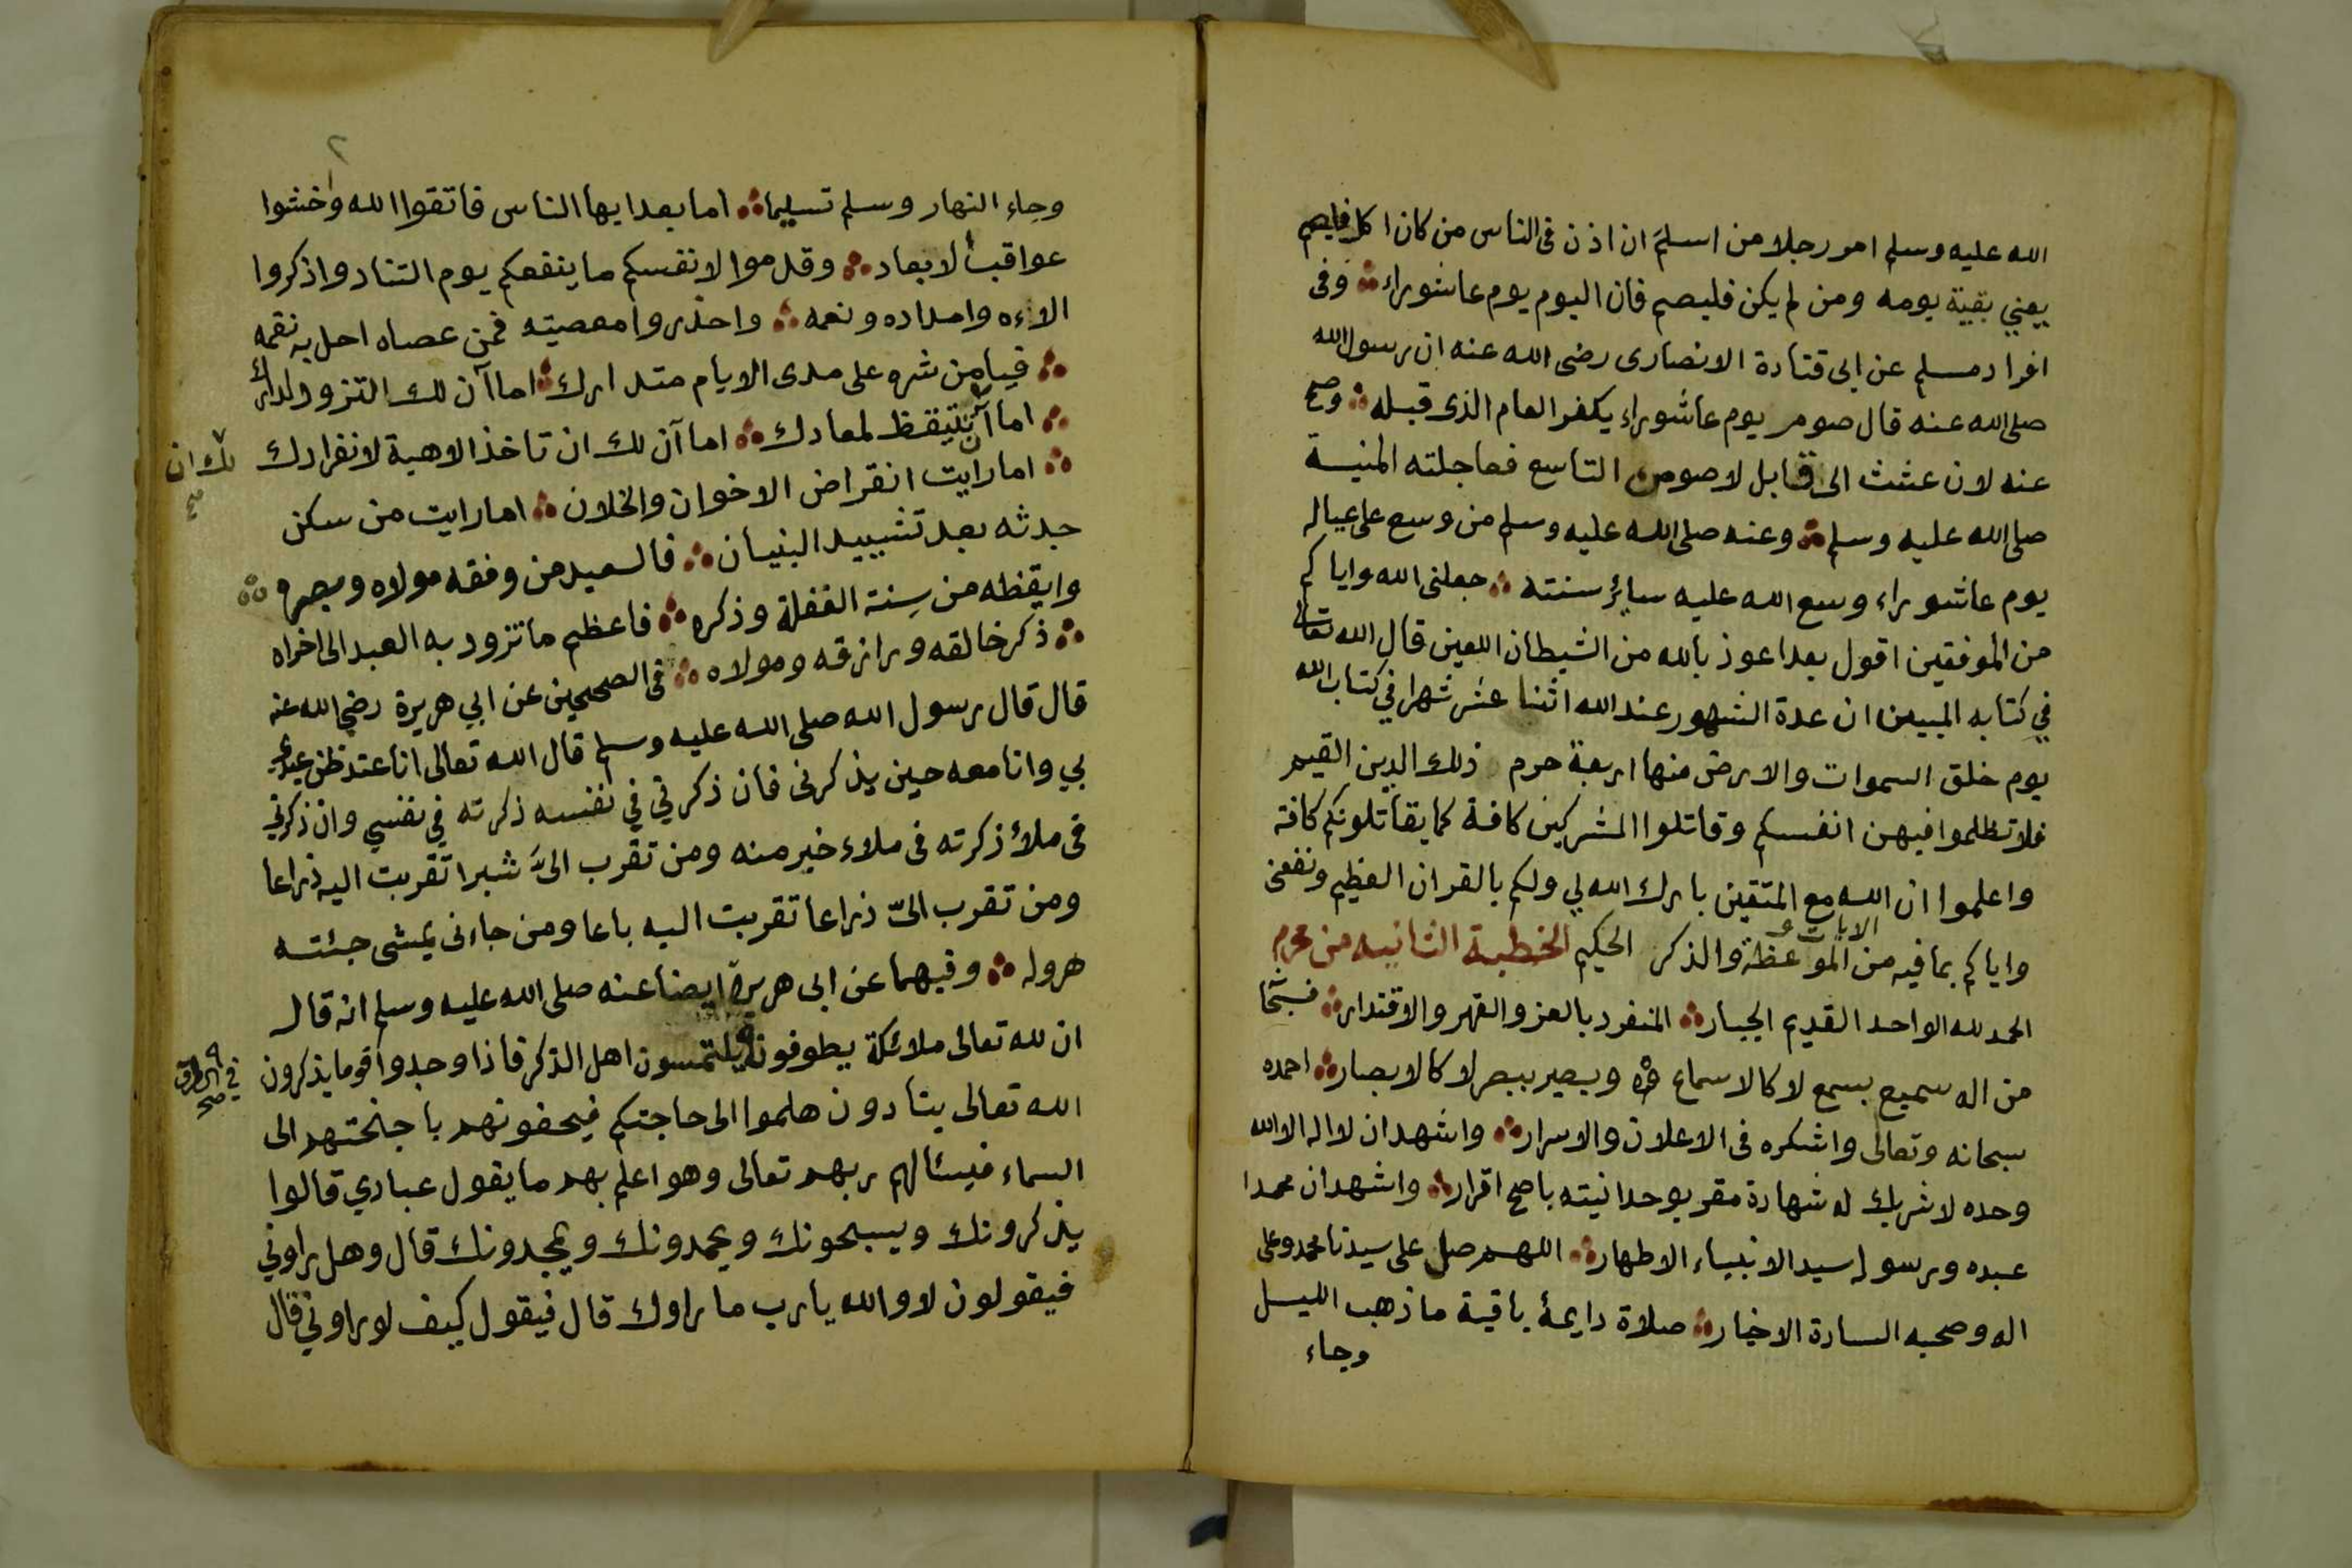 الله عليه وسلم امر رجلا من اسلم ان اذن فى الناس من كان اكل فليصم
يعني بقية يومه ومن لم يكن فليصم فان اليوم يوم عاشوراء وفى
افراد مسلم عن ابى قتادة الانصارى رضى الله عنه ان رسول الله
صلى الله عنه قال صوم يوم عاشوراء يكفر العام الذى قبله وصح
عنه لان عشت الى قابل لاصومن التاسع فعاجلته المنية
صلى الله عليه وسلم وعنه صلى الله عليه وسلم من وسع على عياله
يوم عاشوراء وسع الله عليه سائر سنته جعلنى الله واياكم
من الموفقين اقول بعد اعوذ بالله من الشيطان اللعين قال الله تعالى
في كتابه المبين ان عدة الشهور عند الله اثنا عشر شهرا في كتاب الله
يوم خلق السموات والارض منها اربعة حرم ذلك الدين القيم
فلا تظلموا فيهن انفسكم وقاتلوا المشركين كافة كما يقاتلونكم كافة
واعلموا ان الله مع المتقين بارك الله لي ولكم بالقران العظيم ونفعنى
واياكم بما فيه من الايات و الموعظة والذكر الحكيم الخطبة الثانيه من محرم
الحمد لله الواحد القديم الجبار المنفرد بالعز والقهر والاقتدار فسبحا
من اله سميع بسمع لا كالاسماع وبصير ببصر لا كالابصار احمده
سبحانه وتعالى واشكره فى الاعلان والاسرار واشهد ان لا اله الا الله
وحده لا شريك له شهادة مقر بوحدانيته باصح اقرار واشهد ان محمدا
عبده ورسوله سيد الانبياء الاطهار اللهم صل على سيدنا محمد وعلى
اله وصحبه السادة الاخيار صلاة دايمة باقية ما ذهب الليل
وجاء
٢
وجاء النهار وسلم تسليما اما بعد ايها الناس فاتقوا الله واخشوا
عواقب الابعاد وقدموا لانفسكم ما ينفعكم يوم التناد واذكروا
الاءه وامداده ونعمه واحذروا معصيته فمن عصاه احل به نقمه
فيا من شره على مدى الايام متدارك اما آن لك التزود لدارك
اما آن لك ان تتيقظ لمعادك اما آن لك ان تاخذ الاهبة لانفرادك
لك ان صح
اما رايت انقراض الاخوان والخلان اما رايت من سكن
جدثه بعد تشييد البنيان فالسعيد من وفقه مولاه وبصره
وايقظه من سِنة الغفلة وذكره فاعظم ما تزود به العبد الى اخراه
ذكر خالقه ورازقه ومولاه فى الصحيحين عن ابي هريرة رضي الله عنه
قال قال رسول الله صلى الله عليه وسلم قال الله تعالى انا عند ظن عبدي
بي وانا معه حين يذكرنى فان ذكرني في نفسه ذكرته في نفسي وان ذكرني
فى ملأ ذكرته فى ملاء خير منه ومن تقرب الىّ شبرا تقربت اليه ذراعا
ومن تقرب الىّ ذراعا تقربت اليه باعا ومن جاءنى يمشى جئته
هرولة وفيهما عن ابى هريرة ايضا عنه صلى الله عليه وسلم انه قال
ان لله تعالى ملائكة يطوفون يلتمسون اهل الذكر فاذا وجدوا قوما يذكرون
في الطرق صح
الله تعالى يتنادون هلموا الى حاجتكم فيحفونهم باجنحتهم الى
السماء فيسئالهم ربهم تعالى وهو اعلم بهم ما يقول عبادي قالوا
يذكرونك ويسبحونك ويحمدونك ويمجدونك قال وهل راوني
فيقولون لا والله يارب ما راوك قال فيقول كيف لو راوني قال